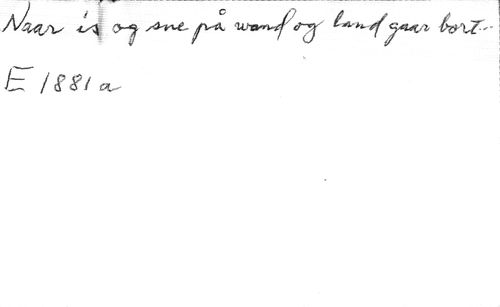 Naar is og sne på wand og land gaar bort..
E 1881 a